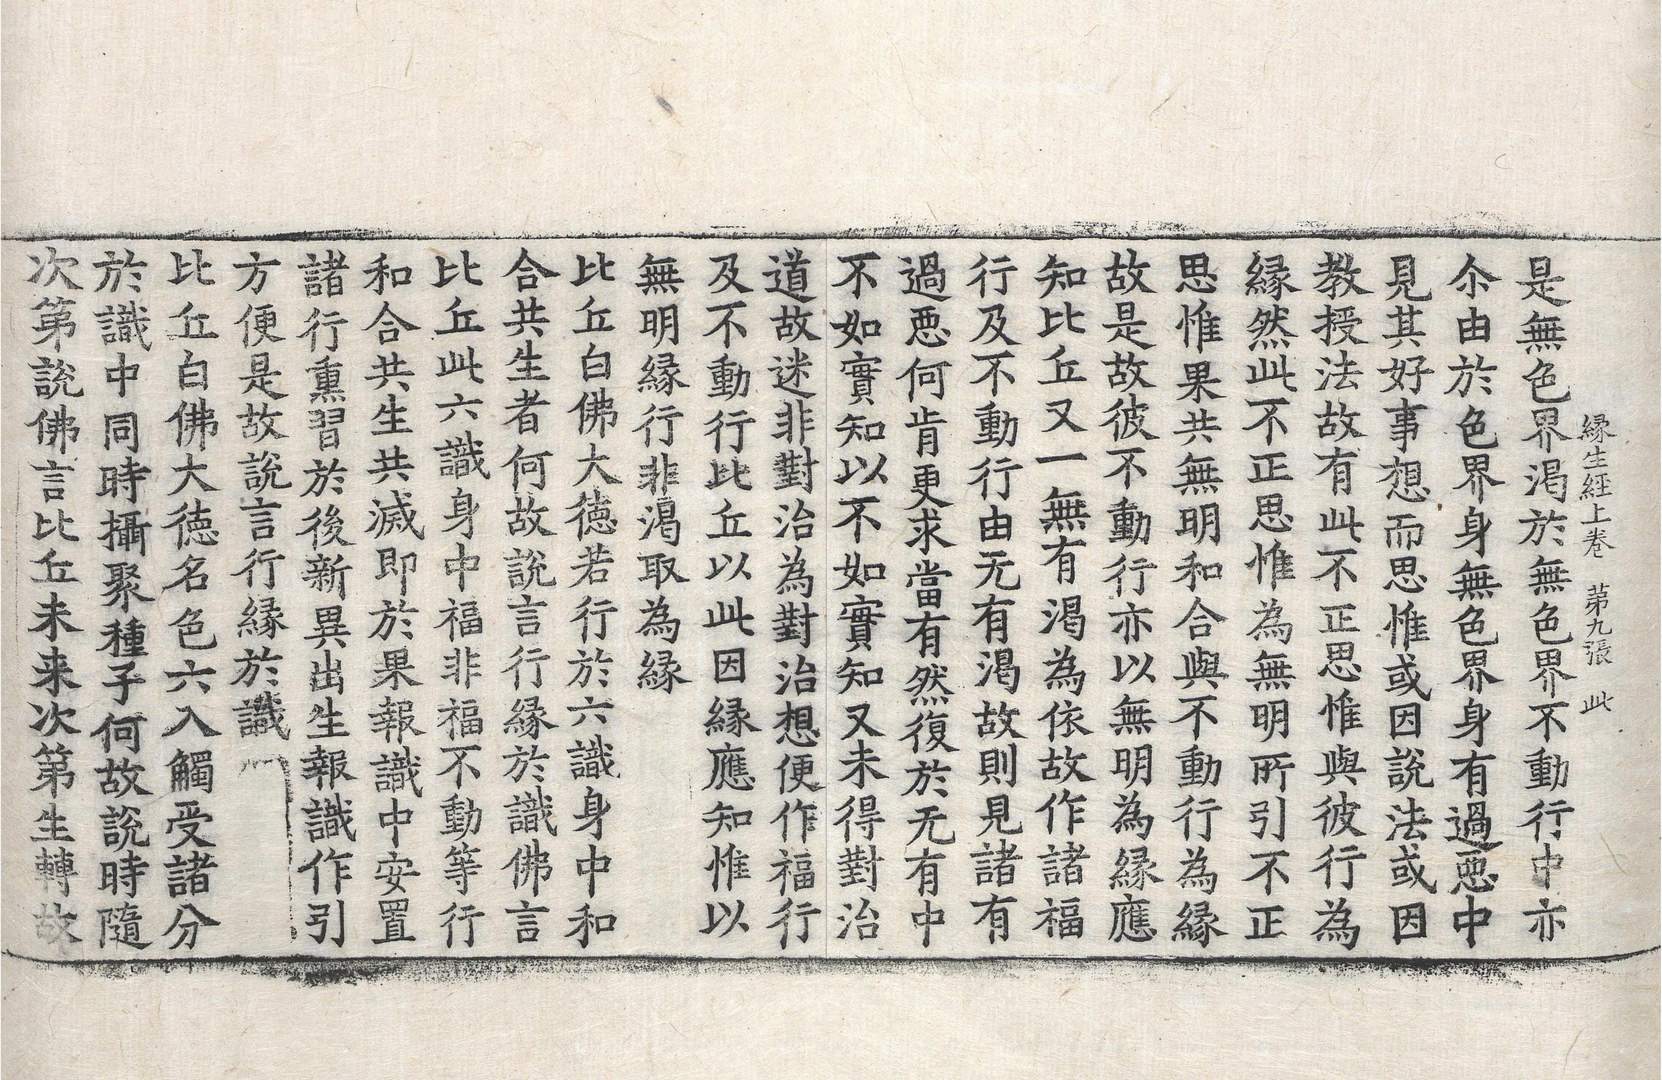 縁生經上卷　苐九張　此
是無色界渴於無色界不動行中亦
尒由於色界身無色界身有過惡中
見其好事想而思惟或因說法或因
教授法故有此不正思惟與彼行為
縁然此不正思惟為無明所引不正
思惟果共無明和合與不動行為縁
故是故彼不動行亦以無明為縁應
知比丘又一無有渴為依故作諸福
行及不動行由无有渴故則見諸有
過惡何肯更求當有然復於无有中
不如實知以不如實知又未得對治
道故迷非對治為對治想便作福行
及不動行比丘以此因縁應知惟以
無明縁行非渴取為縁
比丘白佛大德若行於六識身中和
合共生者何故說言行縁於識佛言
比丘此六識身中福非福不動等行
和合共生共滅即於果報識中安置
諸行熏習於後新異出生報識作引
方便是故說言行縁於識
比丘白佛大德名色六入觸受諸分
於識中同時攝聚種子何故說時隨
次第說佛言比丘未来次第生轉故